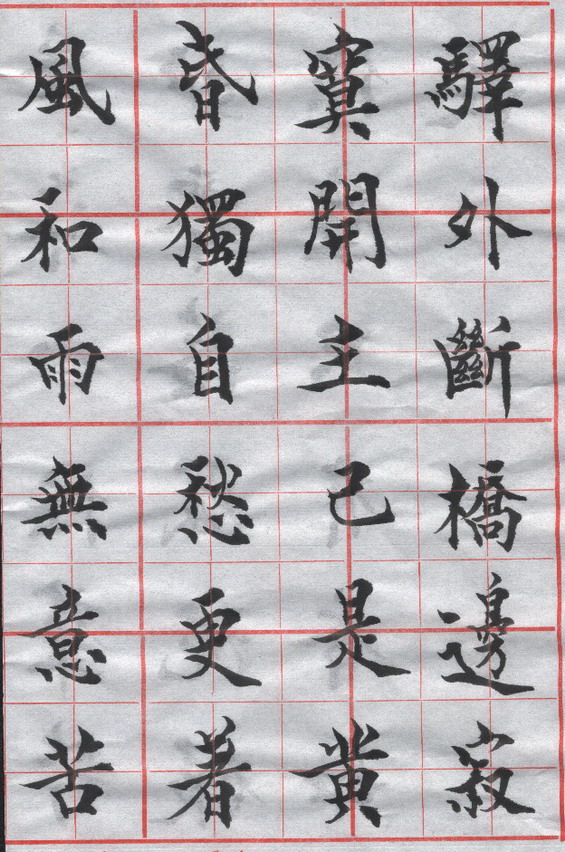 驛外斷橋邊寂
寞開主己是黄
昏獨自愁更着
風和雨無意苦